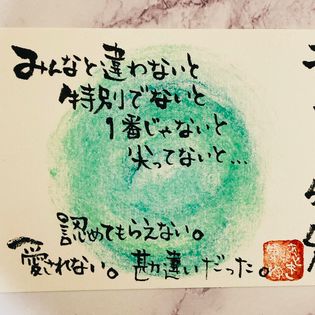 みんなと違わないと
特別でないと
1番じゃないと
尖ってないと…
認めてもらえない。
愛されない。勘違いだった。